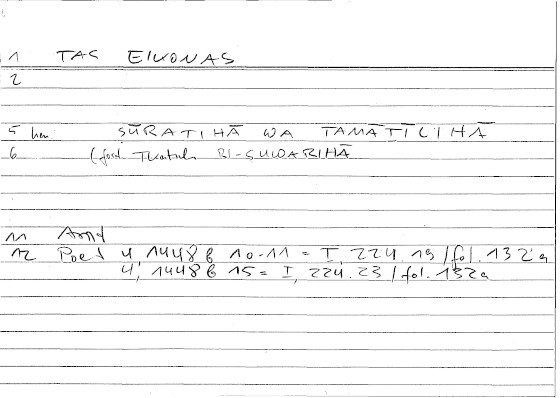 1 TAS EIKONAS
2
5 ṢŪRATIHĀ WA TAMĀṮĪLIHĀ
6 BI-ṢUWARIHĀ
11 Arist
12 Poet 4, 1448 b 10-11 = I, 224.19 / fol. 132 a
4, 1448 b 15 = I, 224.23 / fol. 132 a